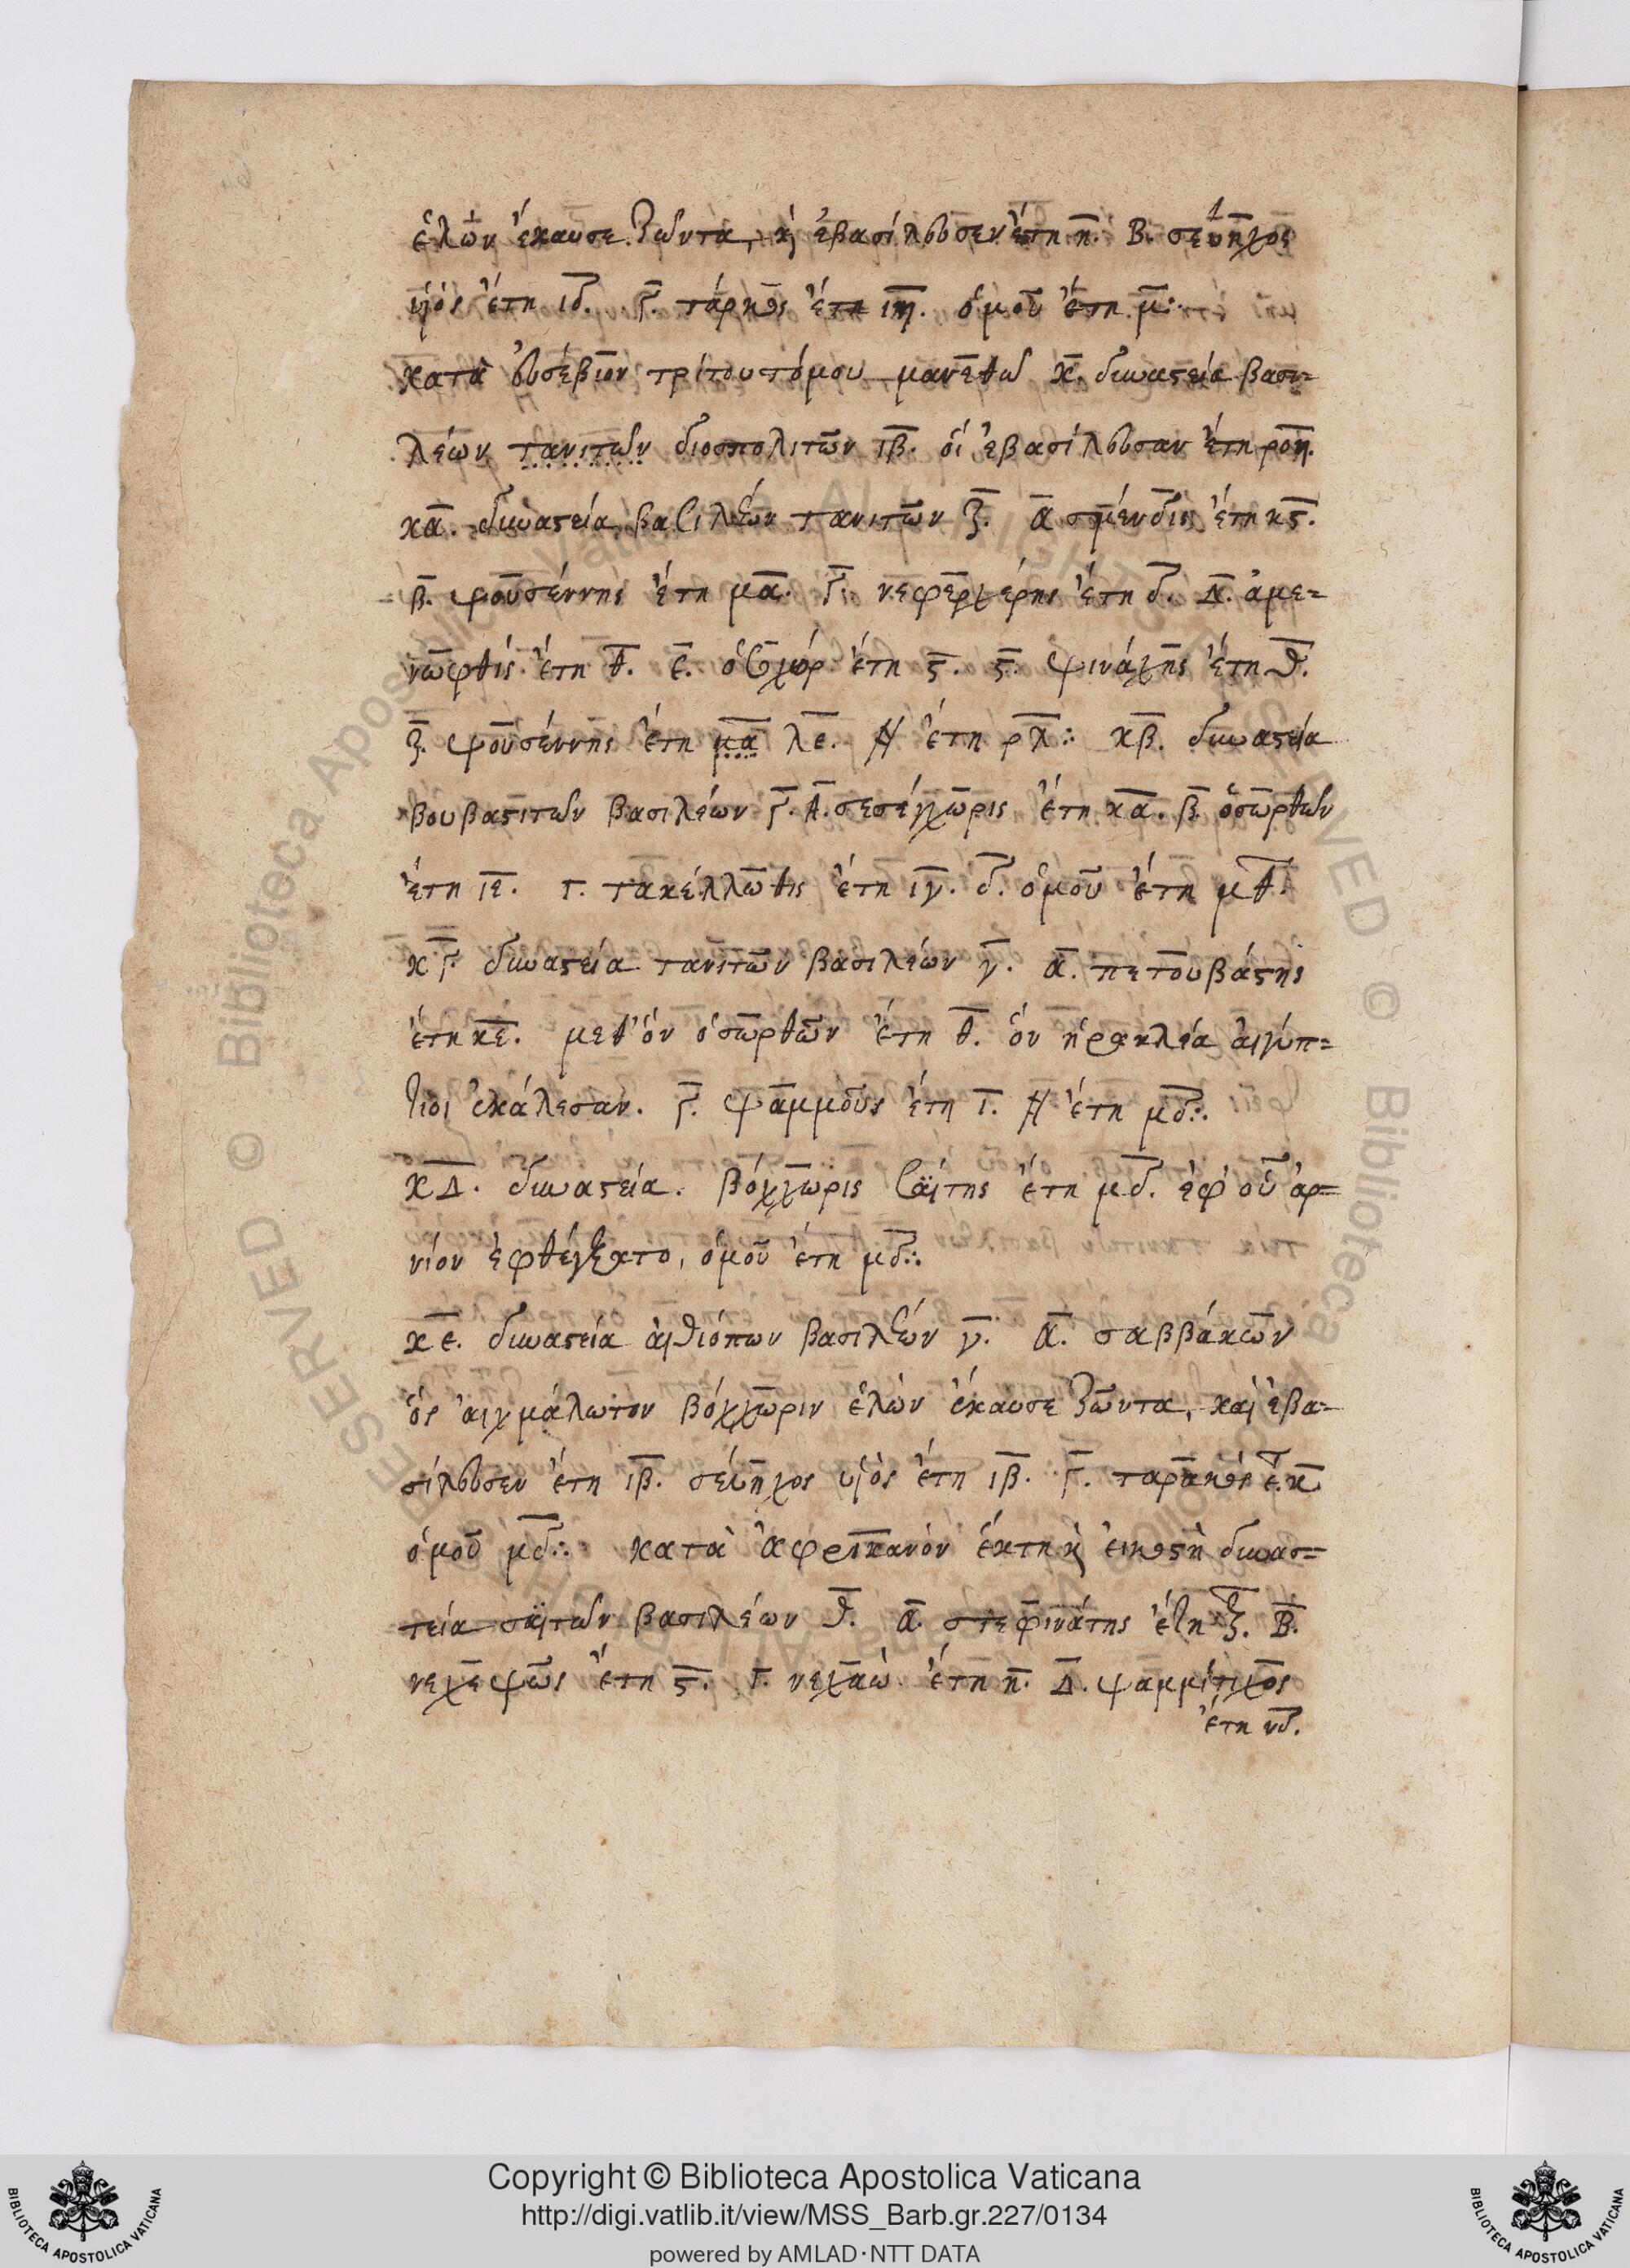 ἑλὼν ἔκαυσε ζῶντα, κ̀ ἐβασίλευσεν ἔτη η̅. Β. σευῆχος
υἱὸς ἔτη ιδ̅. Γ̅. τάρκος ἔτη ιη̅. ὁμοῦ ἔτη μ̅:
κατὰ εὐσέβιον τρίτου τόμου μανεθῶ κ̅. δυναστεία βασι=
λέων τανιτῶν διοσπολιτῶν ιβ̅. οἳ ἐβασίλευσαν ἔτη ροη̅.
κα̅. δυναστεία βασιλέων τανιτῶν ζ̅. α̅ σμένδις ἔτη κς̅.
β̅. ψουσέννης ἔτη μα̅. Γ̅. νεφερχέρης ἔτη δ̅. Δ̅. ἀμε=
νωφθίς ἔτη θ̅. ε̅. ὀσοχὼρ ἔτη ς̅. ς̅. ψινάχης ἔτη θ̅.
ζ̅. ψουσέννης ἔτη μα̅ λε̅. ἔτη ρλ̅: κβ̅. δυναστεία
βουβαστιτῶν βασιλέων Γ̅. Α̅. σεσέγχωρις ἔτη κα̅. β̅. ὀσωρθὼν
ἔτη ιε̅. Γ. τακέλλωθις ἔτη ιγ̅. δ̅. ὁμοῦ ἔτη μθ̅.
κΓ̅. δυναστεία τανιτῶν βασιλέων γ̅. α̅. πετουβάστης
ἔτη κε̅. μεθ' ὃν ὀσωρθῶν ἔτη θ̅. ὃν ἡρακλέα αἰγύπ=
τιοι ἐκάλεσαν. Γ̅. ψαμμοῦς ἔτη ι̅. ἔτη μδ̅:.
κΔ̅. δυναστεία. βόχχωρις σαΐτης ἔτη μδ̅. ἐφ' οὗ ἀρ=
νίον ἐφθέγξατο, ὁμοῦ ἔτη μδ̅:.
κε̅. δυναστεία αἰθιόπων βασιλέων γ̅. α̅. σαββάκων
ὃς αἰχμάλωτον βόχχωριν ἑλὼν ἔκαυσε ζῶντα, καὶ ἐβα=
σίλευσεν ἔτη ιβ̅. σέυηχος υἱὸς ἔτη ιβ̅. Γ̅. ταρακὸς ἔ. κ̅
ὁμοῦ μδ̅:. κατὰ ἀφρικανὸν ἕκτη κ̀ εἰκοστὴ δυνασ=
τεία σαϊτῶν βασιλέων θ̅. α̅. στεφινάτης ἔτη ζ̅. Β̅.
νεχεψῶς ἔτη ς̅. Γ. νεχαὼ ἔτη η̅. Δ̅. ψαμμίτιχος
ἔτη νδ̅.
Copyright © Biblioteca Apostolica Vaticana
http://digi.vatlib.it/view/MSS_Barb.gr.227/0134
powered by AMLAD·NTT DATA
BIBLIOTECA APOSTOLICA VATICANA
BIBLIOTECA APOSTOLICA VATICANA